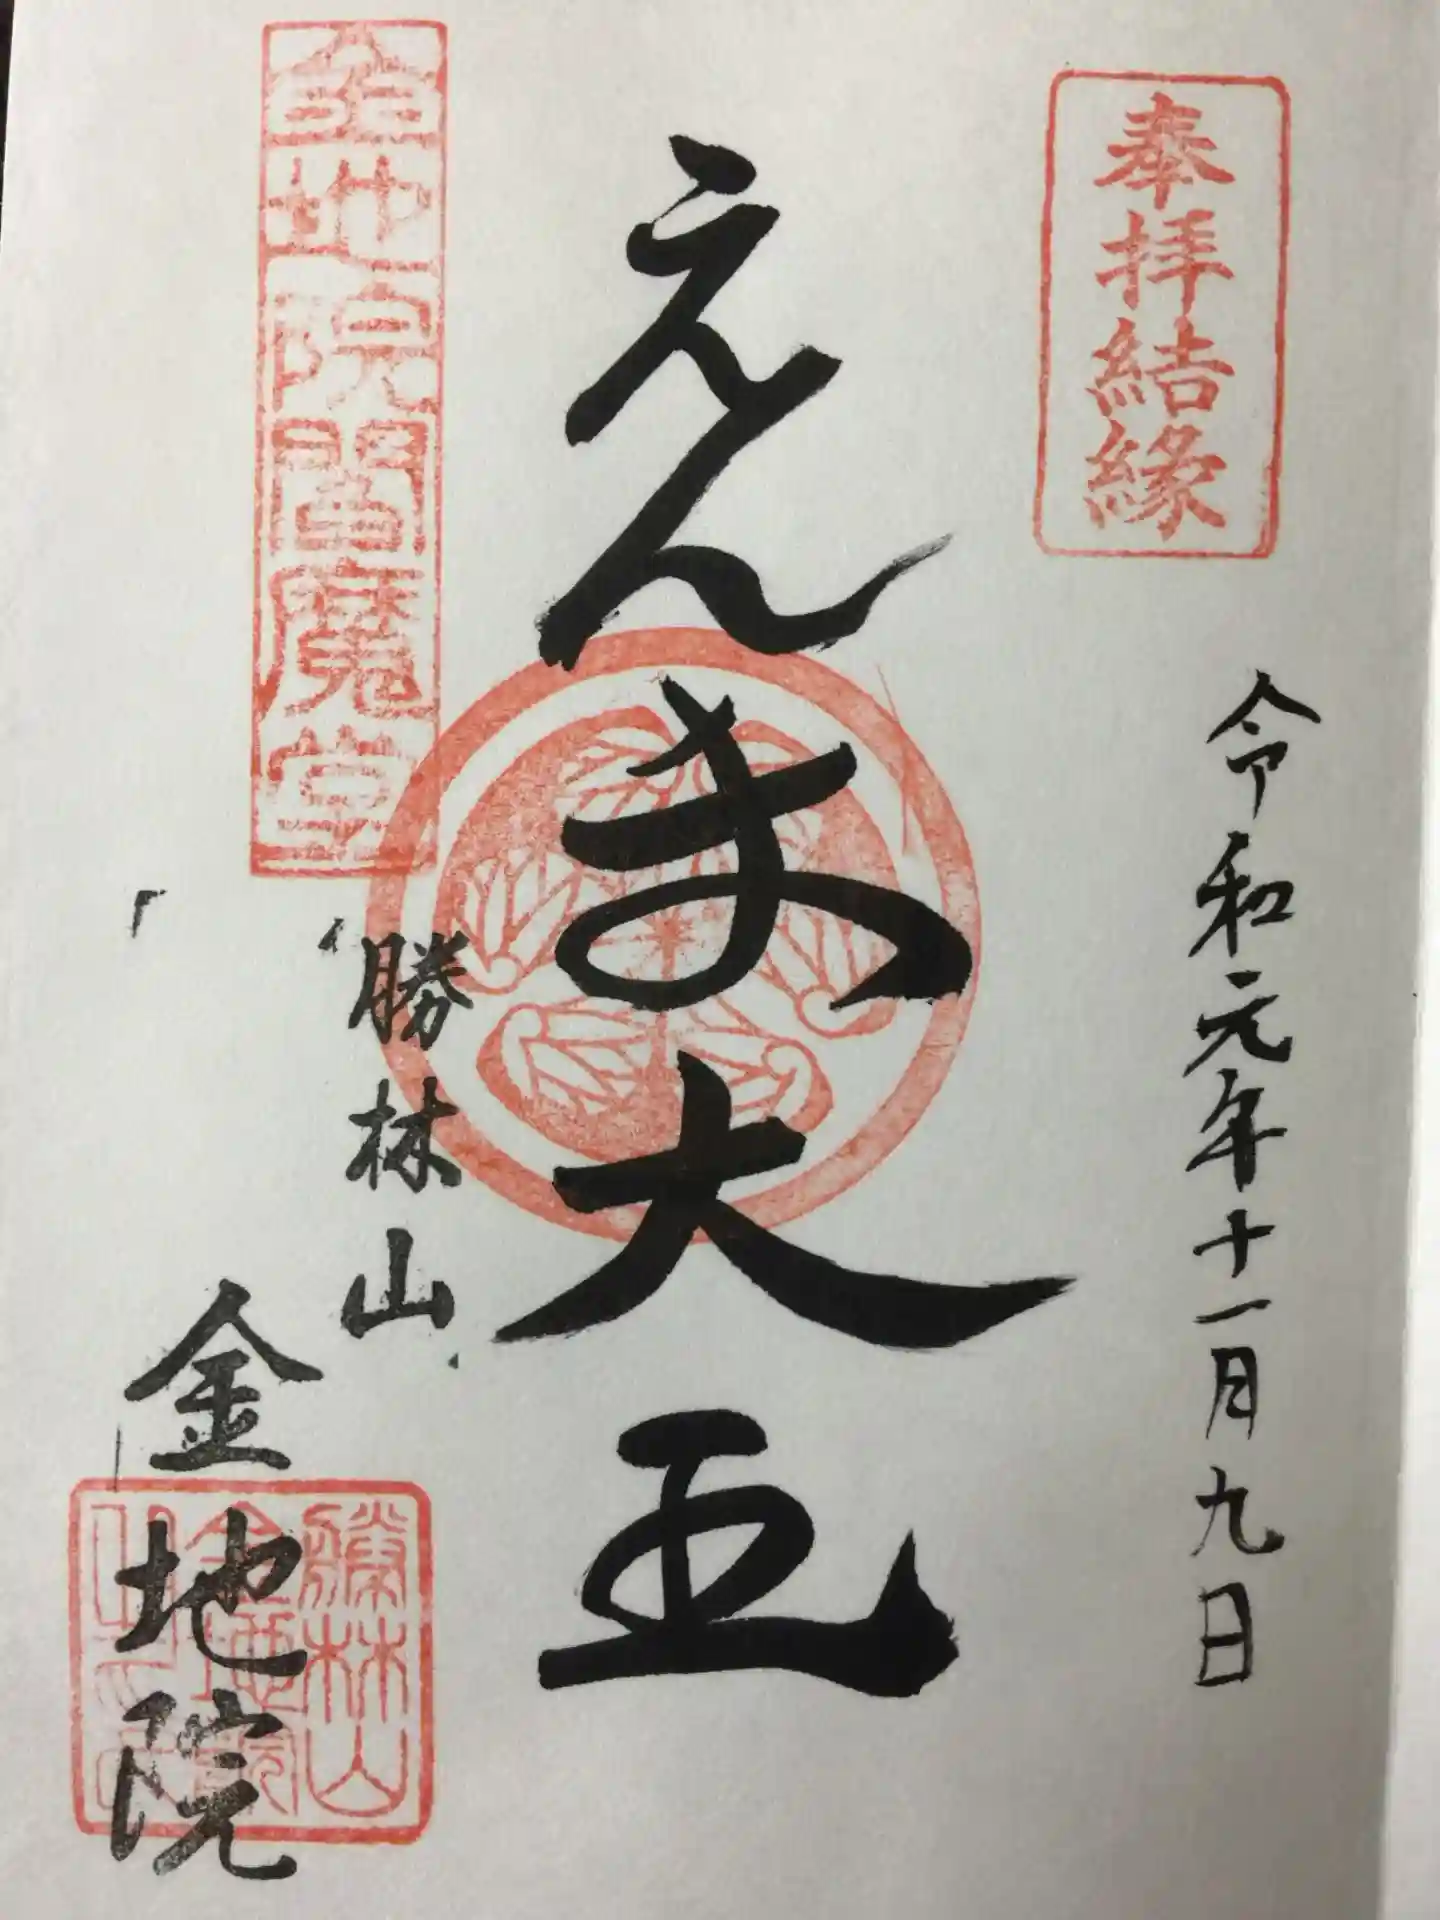 奉拝結縁
令和元年十一月九日
えんま大王
金地院閻魔堂
勝林山
金地院
勝林山
金地院